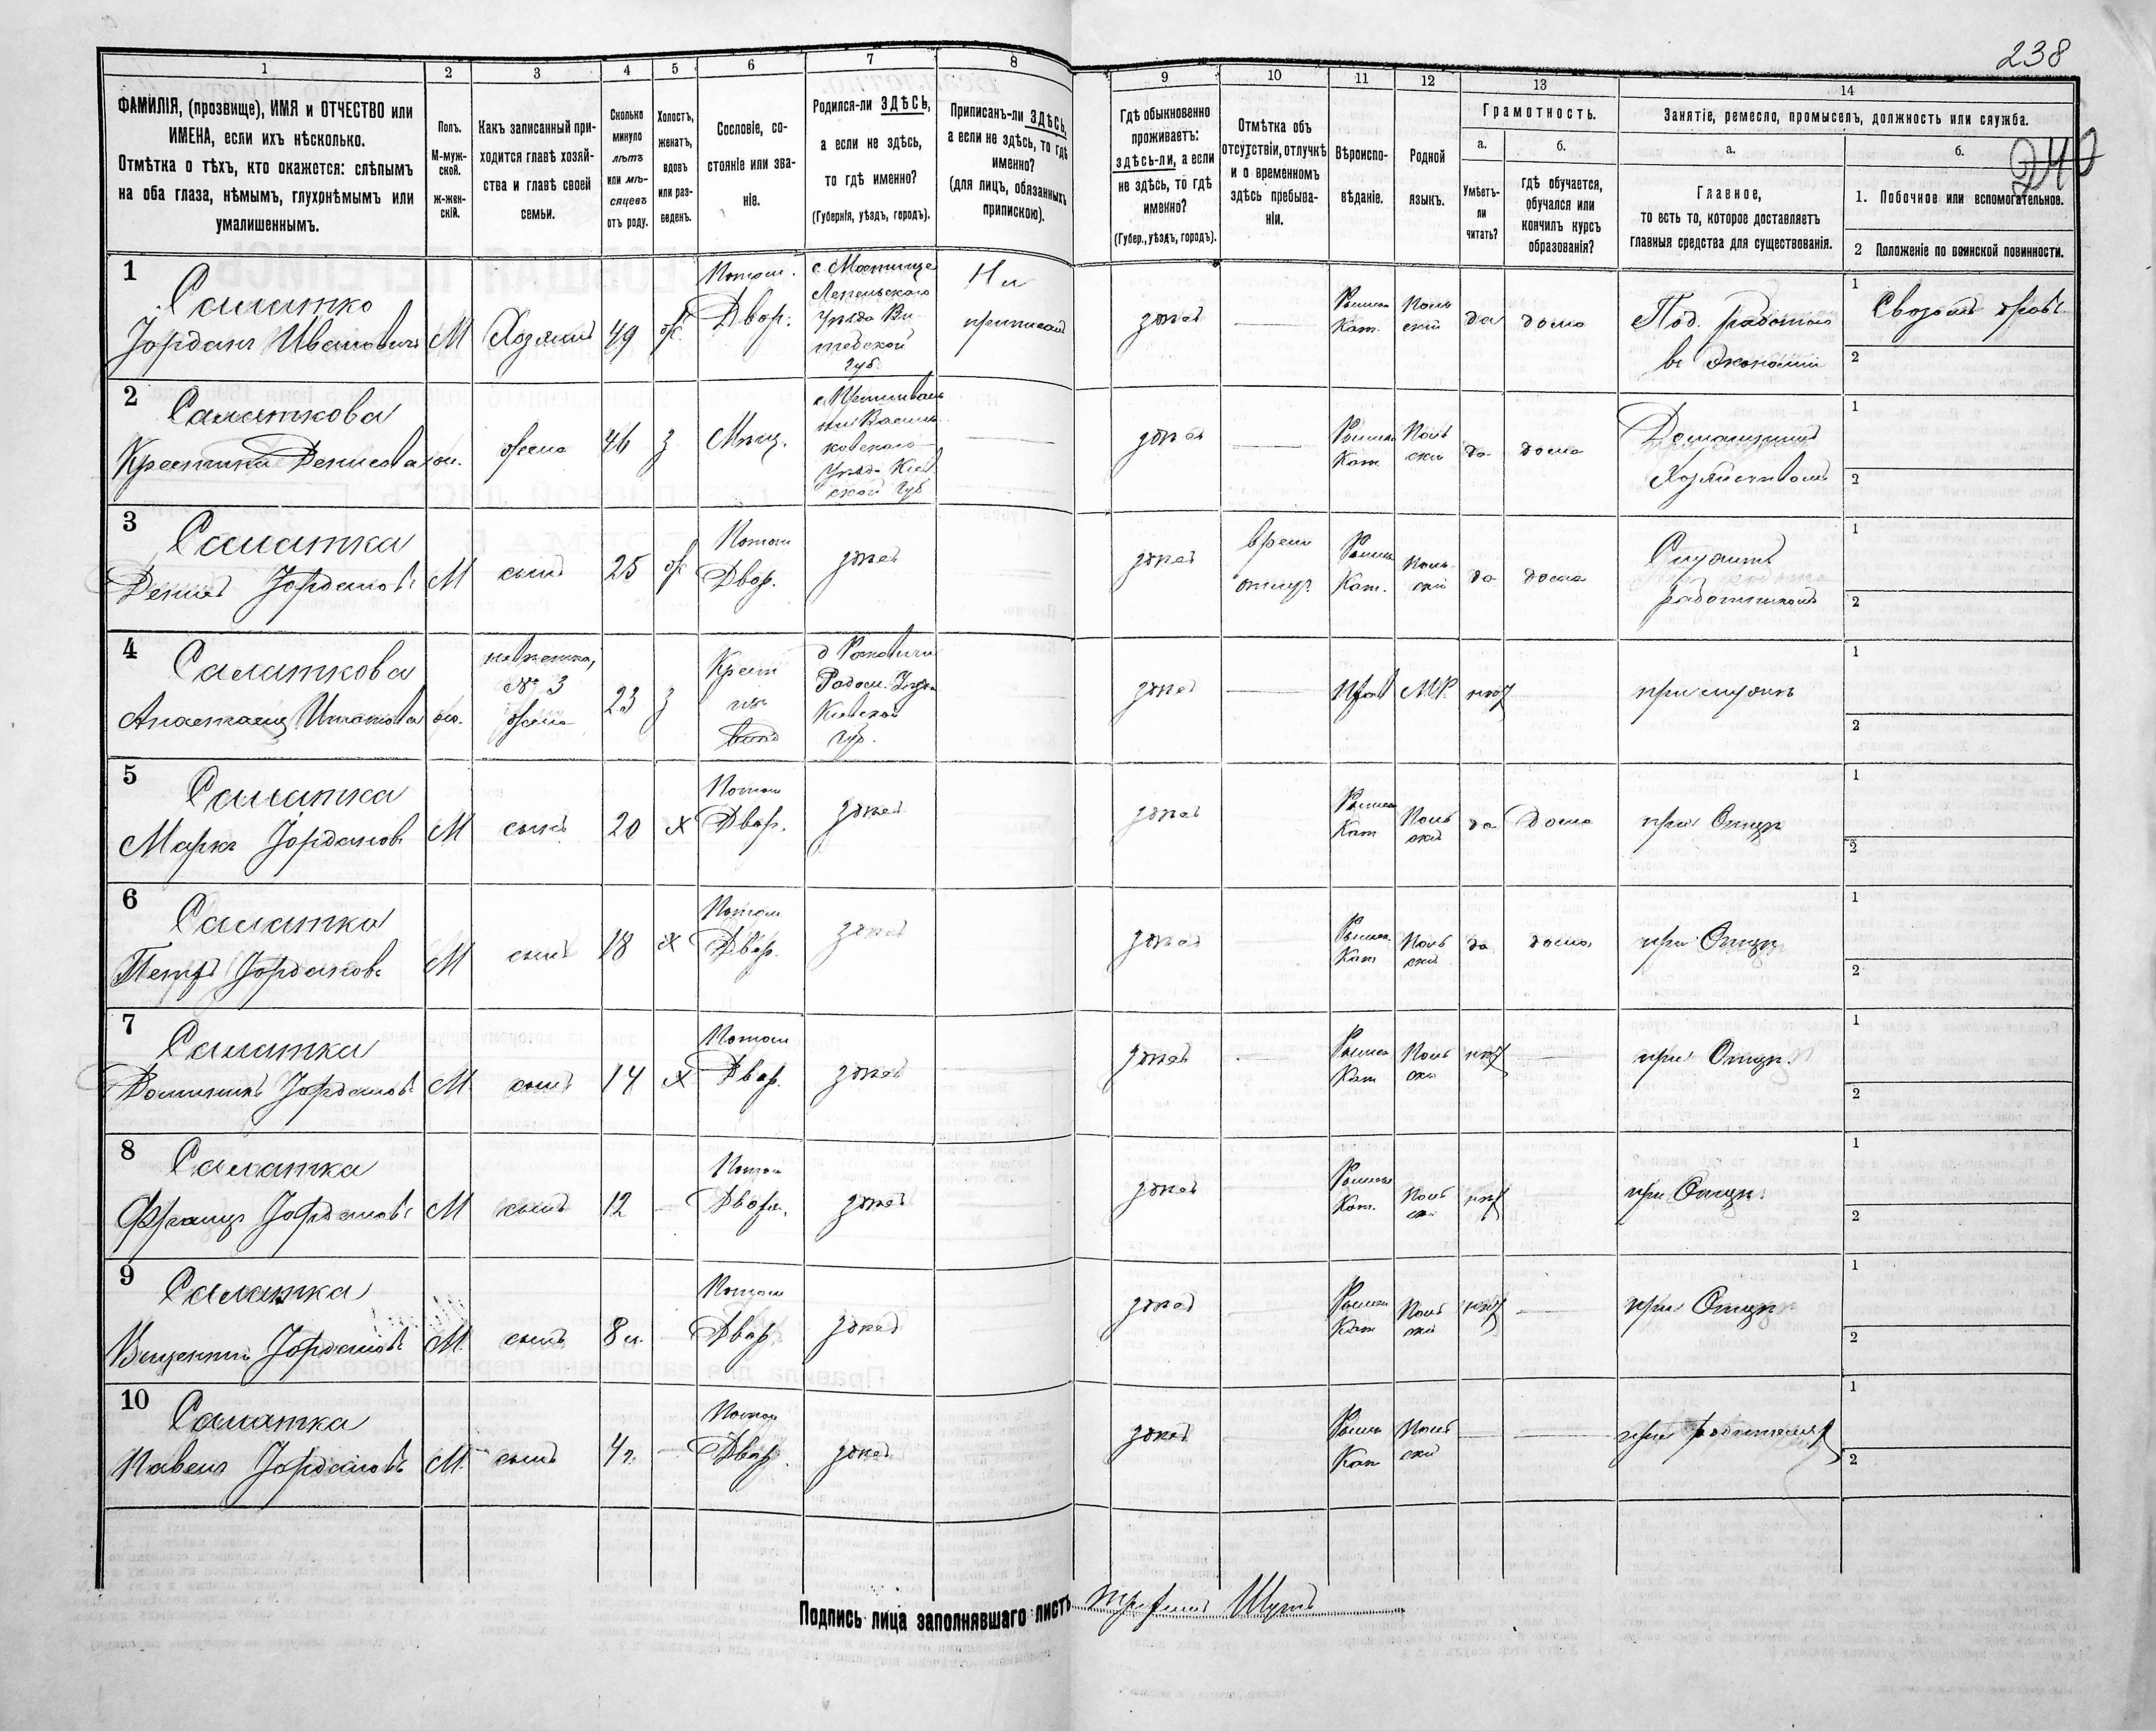 238
240
1
2
3
4
5
6
7
8
9
10
11
12
13
14
ФАМИЛІЯ, (прозвище), ИМЯ и ОТЧЕСТВО или
ИМЕНА, если ихъ нѣсколько.
Отмѣтка о тѣхъ, кто окажется: слѣпымъ
на оба глаза, нѣмымъ, глухонѣмымъ или
умалишеннымъ.
Полъ.
М-муж-
ской.
ж-жен-
скій.
Какъ записанный при-
ходится главѣ хозяй-
ства и главѣ своей
семьи.
Сколько
минуло
лѣтъ
или мѣ-
сяцевъ
отъ роду.
Холостъ,
женатъ,
вдовъ
или раз-
веденъ.
Сословіе, со-
стояніе или зва-
ніе.
Родился-ли ЗДѢСЬ,
а если не здѣсь,
то гдѣ именно?
(Губернія, уѣздъ, городъ).
Приписанъ-ли ЗДѢСЬ,
а если не здѣсь, то гдѣ
именно?
(для лицъ, обязанныхъ
припискою).
Гдѣ обыкновенно
проживаетъ:
здѣсь-ли, а если
не здѣсь, то гдѣ
именно?
(Губер., уѣздъ, городъ).
Отмѣтка объ
отсутствіи, отлучкѣ
и о временномъ
здѣсь пребыва-
ніи.
Вѣроиспо-
вѣданіе.
Родной
языкъ.
Грамотность.
а.
Умѣетъ-
ли
читать?
б.
гдѣ обучается,
обучался или
кончилъ курсъ
образованія?
Занятіе, ремесло, промыселъ, должность или служба.
а.
Главное,
то есть то, которое доставляетъ
главныя средства для существованія.
б.
1. Побочное или вспомогательное.
2 Положеніе по воинской повинности.
1
Салатко
Іорданъ Ивановичъ
М
Хозяинъ
49
ж.
Потом.
Двор.
Лепельскаго
Уѣзда Ви-
тебской
Губ.
Не
приписан
здѣсь
Римско
Кат.
Поль
скій
да
дома
Под. работы
въ экономіи
1
2
2
Салаткова
Кристина Денисова
ж.
жена
46
з
Мѣщ.
Василь
ковскаго
Уѣзда Кіев
ской Губ
здѣсь
Римско
Кат
Поль
скій
да
дома
Домашнимъ
Хозяйствомъ
1
2
3
Салатка
Денисъ Іордановъ
М
сынъ
25
ж
Потом
Двор.
здѣсь
здѣсь
врем
отлуч.
Римско
Кат.
Поль
скій
да
дома
Служитъ
работникомъ
1
2
4
Салаткова
Анастасія
ж.
невѣстка,
№ 3
жена
23
з
Крест
Радом. Уѣзда
Кіевской
губ.
здѣсь
Прав
МР.
нѣтъ
при мужѣ
1
2
5
Салатка
Маркъ Іорданов.
М
сынъ
20
х
Потом
Двор.
здѣсь
здѣсь
Римско
Кат
Поль
скій
да
Дома
при Отцѣ
1
2
6
Салатка
Петръ Іорданов.
М
сынъ
18
х
Потом
Двор.
здѣсь
здѣсь
Римско
Кат
Поль
скій
да
дома
при Отцѣ
1
2
7
Салатка
Доминикъ Іордановъ
М
сынъ
14
х
Потом
Двор.
здѣсь
здѣсь
Римско
Кат
Поль
скій
нѣтъ
при Отцѣ
1
2
8
Салатка
Францъ Іордановъ
М
сынъ
12
Потом
Двор.
здѣсь
здѣсь
Римско
Кат.
Поль
скій
нѣтъ
при Отцѣ
1
2
9
Салатка
Іордановъ
М.
сынъ
8 л.
Потом
Двор.
здѣсь
здѣсь
Римско
Кат
Поль
скій
нѣтъ
при Отцѣ
1
2
10
Салатка
Павелъ Іордановъ
М.
сынъ
4 г.
Потом
Двор.
здѣсь
здѣсь
Римско
Кат
Поль
скій
при родителях
1
2
Подпись лица заполнявшаго листъ